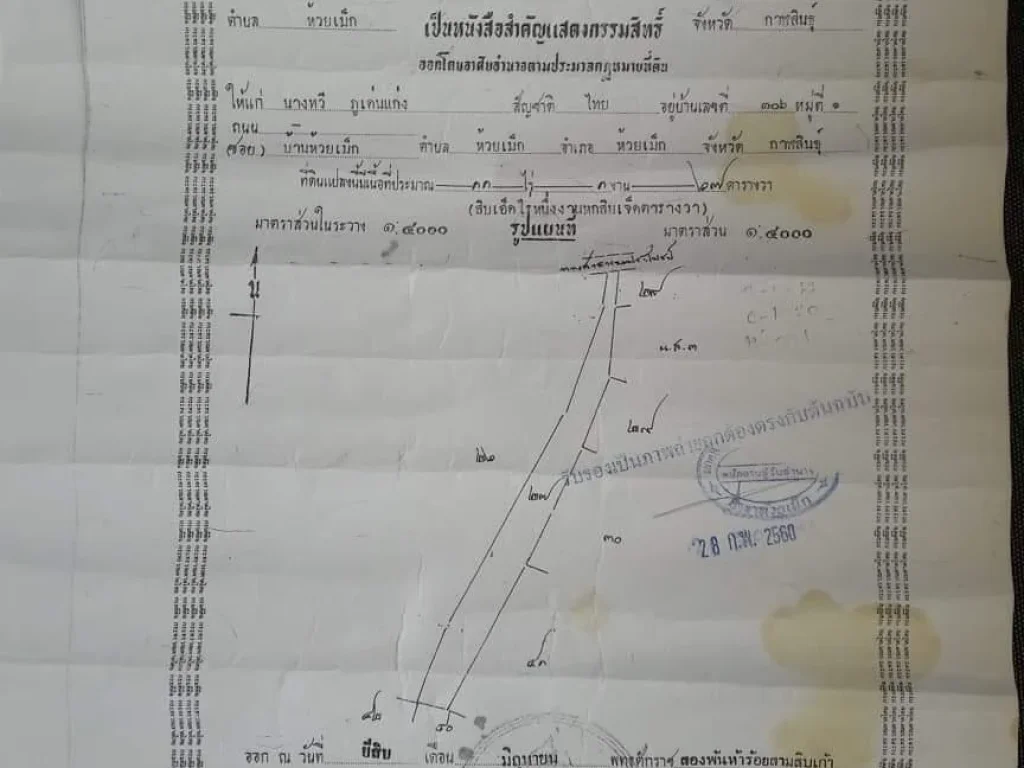 ตำบล ห้วยเม็ก จังหวัด กาฬสินธุ์
เป็นหนังสือสำคัญแสดงกรรมสิทธิ์
ออกโดยอาศัยอำนาจตามประมวลกฎหมายที่ดิน
ให้แก่ นางทวี ภูเด่นแก่ง สัญชาติ ไทย อยู่บ้านเลขที่ ๓๐๖ หมู่ที่ ๑
ถนน –
(ซอย) บ้านห้วยเม็ก ตำบล ห้วยเม็ก อำเภอ ห้วยเม็ก จังหวัด กาฬสินธุ์
ที่ดินแปลงนี้มีเนื้อที่ประมาณ ๑๑ ไร่ ๑ งาน ๖๗ ตารางวา
(สิบเอ็ดไร่หนึ่งงานหกสิบเจ็ดตารางวา)
มาตราส่วนในระวาง ๑:๔๐๐๐ รูปแผนที่ มาตราส่วน ๑:๔๐๐๐
น
น.ส.๓
รับรองเป็นภาพถ่ายถูกต้องตรงกับต้นฉบับ
๓๐
28 ก.พ. 2560
๔๓
๕๐
ออก ณ วันที่ ยี่สิบ เดือน มิถุนายน พุทธศักราช สองพันห้าร้อยสามสิบเก้า